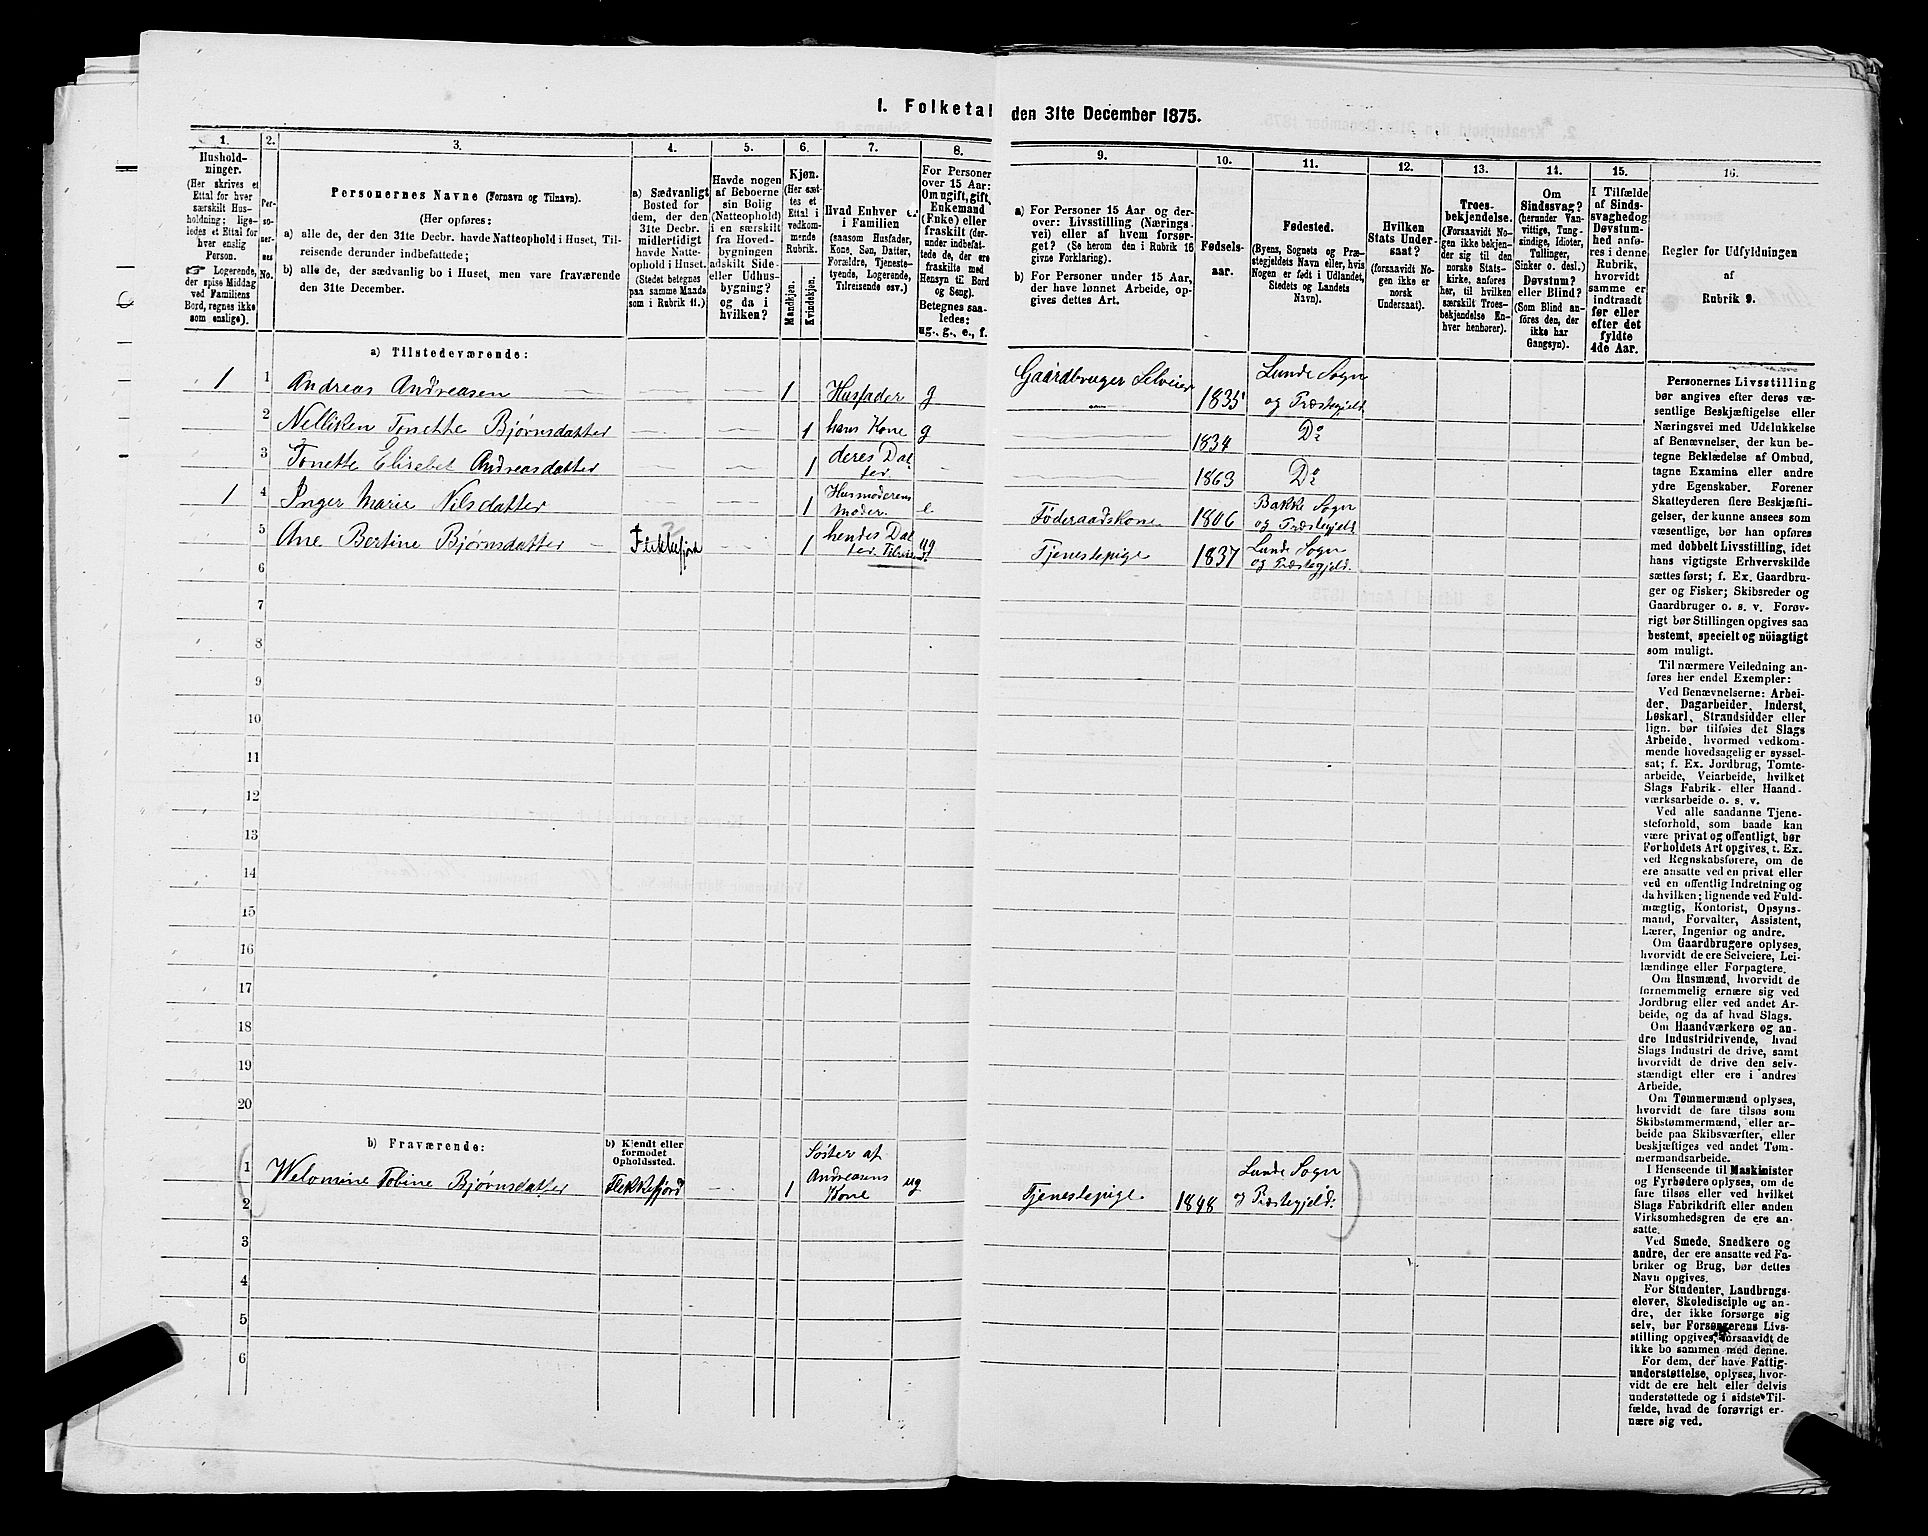 I. Folketal den 31te December 1875.
1.
Hushold-
ninger.
(Her skrives et
Ettal for hver
særskilt Hus-
holdning; lige-
ledes et Ettal for
hver enslig
Person.
☞ Logerende,
der spise Middag
ved Familiens
Bord, regnes ikke
som enslige).
2.
Per-
so-
ner-
nes
No.
3.
Personernes Navne (Fornavn og Tilnavn).
(Her opføres:
a) alle de, der den 31te Decbr. havde Natteophold i Huset, Til-
reisende derunder indbefattede;
b) alle de, der sædvanlig bo i Huset, men vare fraværende
den 31te December.
4.
a) Sædvanligt
Bosted for
dem, der den
31te Decbr.
midlertidigt
havde Natte-
ophold i Huset.
(Stedet betegnes
paa samme Maade
som i Rubrik 11.)
5.
Havde nogen
af Beboerne
sin Bolig
(Natteophold)
i en særskilt
fra Hoved-
bygningen
adskilt Side-
eller Udhus-
bygning?
og da i
hvilken?
6.
Kjøn.
(Her sæt-
tes et
Ettal i
vedkom-
mende
Rubrik.
Mandkjøn.
Kvindekjøn.
7.
Hvad Enhver er
i Familien
(saasom Husfader,
Kone, Søn, Datter,
Forældre, Tjeneste-
tyende, Logerende,
Tilreisende osv.)
8.
For Personer
over 15 Aar:
Om ugift, gift,
Enkemand
(Enke) eller
fraskilt (der-
under indbefat-
tede de, der ere
fraskilte med
Hensyn til Bord
og Seng).
Betegnes saa-
ledes:
ug., g., e., f.
9.
a) For Personer 15 Aar og der-
over: Livsstilling (Nærings-
vei) eller af hvem forsør-
get? (Se herom den i Rubrik 16
givne Forklaring).
b) For Personer under 15 Aar,
der have lønnet Arbeide, op-
gives dettes Art.
10.
Fødsels-
aar.
11.
Fødested.
(Byens, Sognets og Præ-
stegjeldets Navn eller, hvis
Nogen er født i Udlandet,
Stedets og Landets
Navn).
12.
Hvilken
Stats Under-
saat?
(forsaavidt No-
gen ikke er
norsk
Undersaat).
13.
Troes-
bekjendelse.
(Forsaavidt No-
gen ikke bekjen-
der sig til den
norske Stats-
kirke, anføres
her, til hvilken
særskilt Troes-
bekjendelse En-
hver henhører).
14.
Om
Sindssvag?
(herunder Van-
vittige, Tung-
sindige, Idioter,
Tullinger,
Sinker o. desl.)
Døvstum?
eller Blind?
(Som Blind an-
føres den, der
ikke har
Gangsyn).
15.
I Tilfælde
af Sinds-
svaghed og
Døvstum-
hed anfø-
res i denne
Rubrik,
hvorvidt
samme er
indtraadt
før eller
efter det
fyldte
4de Aar.
16.
Regler for Udfyldningen
af
Rubrik 9.
a) Tilstedeværende:
1 1 Andreas Andreasen — — 1 Husfader g Gaardbruger Selveier 1835 Lunde Sogn og Præstegjeld
2 Nelliken Tonette Bjørnsdatter — — 1 hans Kone g — 1834 Do
3 Tonette Elisabet Andreasdatter — — 1 deres Datter — 1863 Do
1 4 Inger Marie Nilsdatter — — 1 Husmoderens Moder. e Føderaadskone 1806 Bakke Sogn og Præstegjeld
5 Ane Bertine Bjørnsdatter — Flekkefjord — 1 hendes Datter Tilreisende ug Tjenestepige 1837 Lunde Sogn og Præstegjeld.
6
7
8
9
10
11
12
13
14
15
16
17
18
19
20
b) Fraværende:
b) Kjendt eller
formodet
Opholdssted.
1 Welomine Tobine Bjørnsdatter Flekkefjord — 1 Søster af Andreasens Kone ug Tjenestepige 1848 Lunde Sogn og Præstegjeld.
2
3
4
5
6
Personernes Livsstilling
bør angives efter deres væ-
sentlige Beskjæftigelse eller
Næringsvei med Udelukkelse
af Benævnelser, der kun be-
tegne Beklædelse af Ombud,
tagne Examina eller andre
ydre Egenskaber. Forener
Skatteyderen flere Beskjæfti-
gelser, der kunne ansees som
væsentlige, bør han opføres
med dobbelt Livsstilling, idet
hans vigtigste Erhvervskilde
sættes først; f. Ex. Gaardbru-
ger og Fisker; Skibsreder og
Gaardbruger o. s. v. Forøv-
rigt bør Stillingen opgives saa
bestemt, specielt og nöiagtigt
som muligt.
Til nærmere Veiledning an-
føres her endel Exempler:
Ved Benævnelserne: Arbei-
der, Dagarbeider, Inderst,
Løskarl, Strandsidder eller
lign. bør tilføies det Slags
Arbeide, hvormed vedkom-
mende hovedsagelig er syssel-
sat; f. Ex. Jordbrug, Tomte-
arbeide, Veiarbeide, hvilket
Slags Fabrik- eller Haand-
værksarbeide o. s. v.
Ved alle saadanne Tjene-
steforhold, som baade kan
være privat og offentligt, bør
Forholdets Art opgives, t. Ex.
ved Regnskabsførere, om de
ere ansatte ved en privat eller
ved en offentlig Indretning og
da hvilken; lignende ved Fuld-
mægtig, Kontorist, Opsyns-
mand, Forvalter, Assistent,
Lærer, Ingeniør og andre.
Om Gaardbrugere oplyses,
hvorvidt de ere Selveiere, Lei-
lændinge eller Forpagtere.
Om Husmænd, hvorvidt de
fornemmelig ernære sig ved
Jordbrug eller ved andet Ar-
beide, og da af hvad Slags.
Om Haandværkere og an-
dre Industridrivende, hvad
Slags Industri de drive, samt
hvorvidt de drive den selv-
stændigt eller ere i andres
Arbeide.
Om Tømmermænd oplyses,
hvorvidt de fare tilsøs som
Skibstømmermænd, eller ar-
beide paa Skibsværfter, eller
beskjæftiges ved andet Tøm-
mermandsarbeide.
I Henseende til Maskinister
og Fyrbødere oplyses, om de
fare tilsøs eller ved hvilket
Slags Fabrikdrift eller anden
Virksomhedsgren de ere an-
satte.
Ved Smede, Snedkere og
andre, der ere ansatte ved Fa-
briker og Brug, bør dettes
Navn opgives.
For Studenter, Landbrugs-
elever, Skoledisciple og an-
dre, der ikke forsørge sig
selv, bør Forsørgerens Livs-
stilling opgives, forsaavidt de
ikke bo sammen med denne.
For dem, der have Fattig-
understøttelse, oplyses, hvor-
vidt de ere helt eller delvis
understøttede og i sidste Til-
fælde, hvad de forøvrigt er-
nære sig ved.